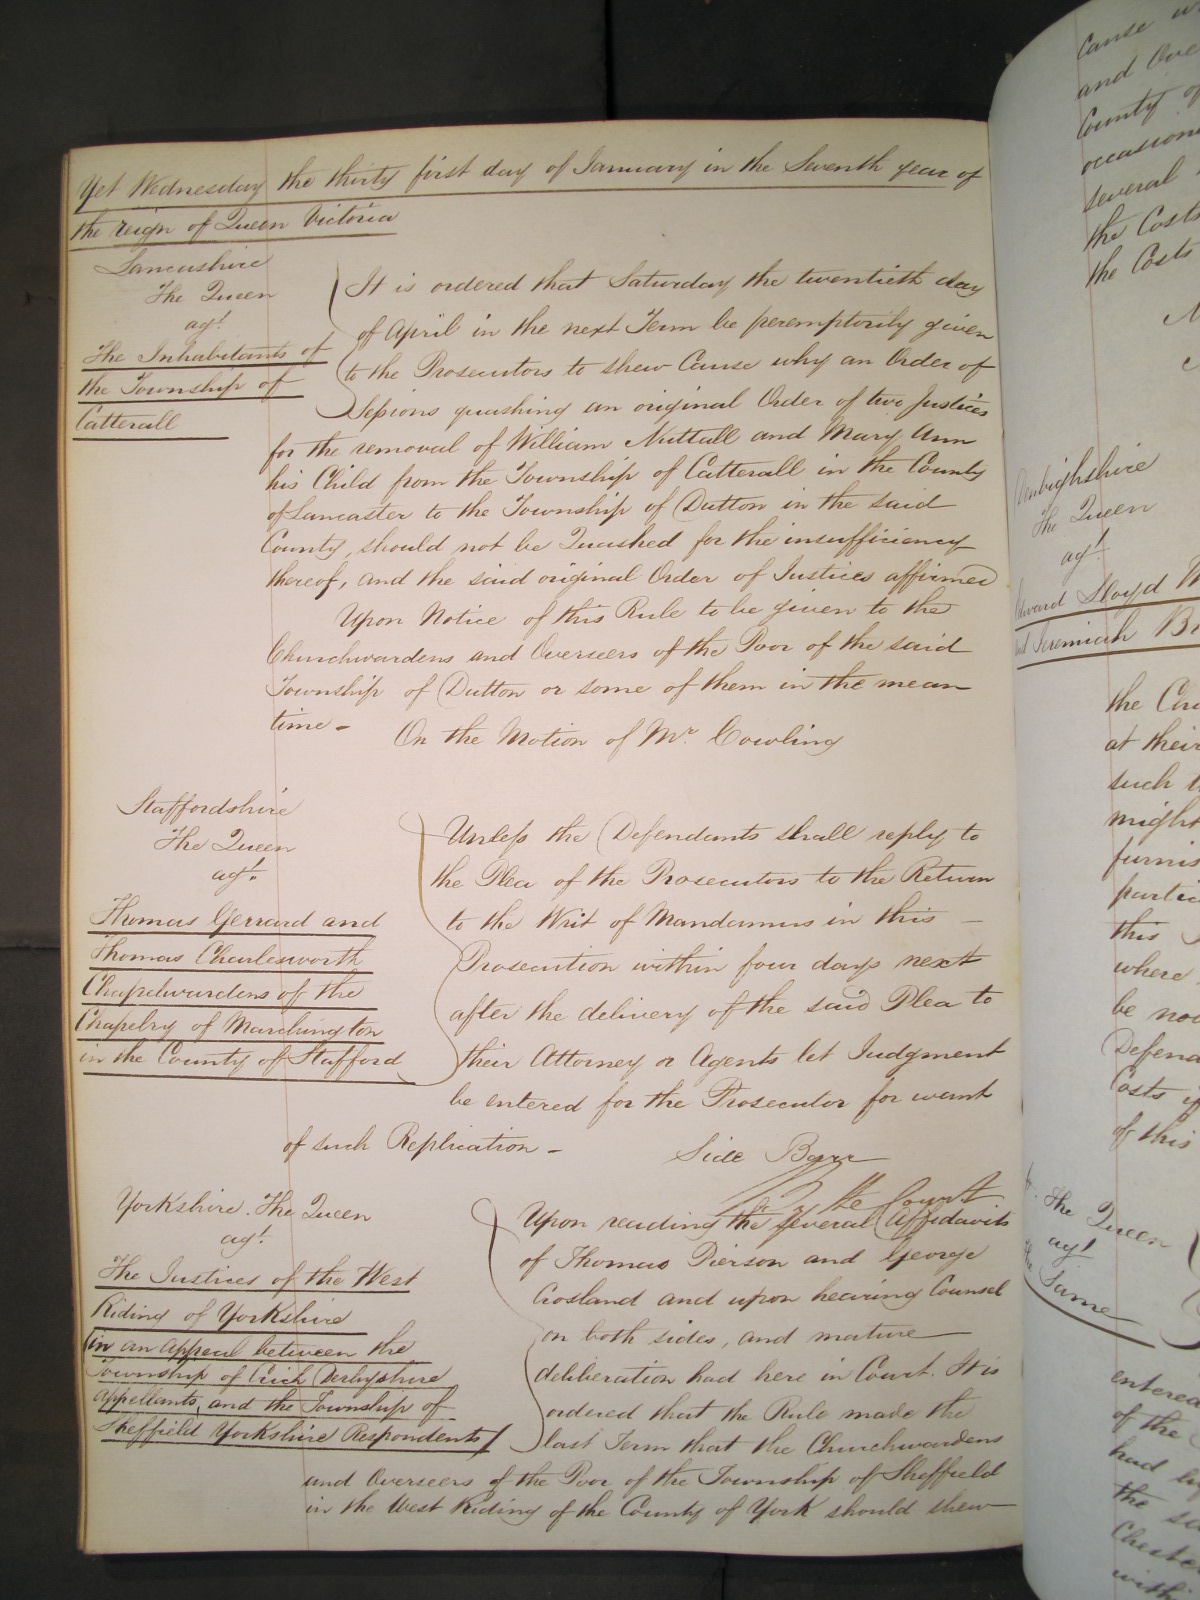 Yet Wednesday the thirty first day of January in the Seventh year of
the reign of Queen Victoria
Lancashire
The Queen
agt.
The Inhabitants of
the Township of
Catterall
It is ordered that Saturday the twentieth day
of April in the next Term be peremptorily given
to the Prosecutors to shew Cause why an Order of
Sessions quashing an original Order of two Justices
for the removal of William Nuttall and Mary Ann
his Child from the Township of Catterall in the County
of Lancaster to the Township of Dutton in the said
County, should not be Quashed for the insufficiency
thereof, and the said original Order of Justices affirmed
Upon Notice of this Rule to be given to the
Churchwardens and Overseers of the Poor of the said
Township of Dutton or some of them in the mean
time -
On the Motion of Mr. Cowling
Staffordshire
The Queen
agt.
Thomas Gerrard and
Thomas Charlesworth
Chapelwardens of the
Chapelry of Marchington
in the County of Stafford
Unless the Defendants shall reply to
the Plea of the Prosecutors to the Return
to the Writ of Mandamus in this -
Prosecution within four days next
after the delivery of the said Plea to
their Attorney or Agents let Judgment
be entered for the Prosecutor for want
of such Replication -
Side Barr
By the Court
Yorkshire. The Queen
agt.
The Justices of the West
Riding of Yorkshire
(in an Appeal between the
Township of Crich Derbyshire
Appellants, and the Township of
Sheffield Yorkshire Respondents)
Upon reading the several Affidavits
of Thomas Pierson and George
Crosland and upon hearing Counsel
on both sides, and mature
deliberation had here in Court. It is
ordered that the Rule made the
last Term that the Churchwardens
and Overseers of the Poor of the Township of Sheffield
in the West Riding of the County of York should shew
Cause
and Over
County of
occasion
several
the Costs
the Costs
Denbighshire
The Queen
agt.
Edward Lloyd
and Jeremiah
the
at their
such
might
furnis
partic
this
where
be
Defend
Costs
of this
The Queen
agt.
The Same
entered
of the
had
the
Chester
with